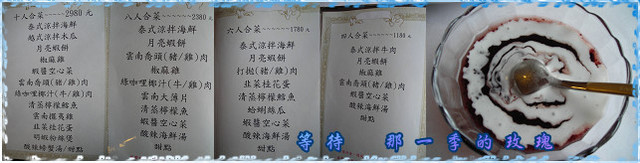 十人合菜-----2980元
泰式涼拌海鮮
越式涼拌木瓜
月亮蝦餅
椒麻雞
蝦醬空心菜
雲南喬頭(豬/雞)肉
綠咖哩椰汁(牛/雞)肉
清蒸檸檬鱈魚
雲南擺夷雞
韭菜桂花蛋
明蝦粉絲煲
酸辣螃蟹湯/甜點
八人合菜-----2380元
泰式涼拌海鮮
月亮蝦餅
椒麻雞
雲南喬頭(豬/雞)肉
綠咖哩椰汁(牛/雞)肉
雲南大薄片
清蒸檸檬鱈魚
韭菜桂花蛋
蝦醬空心菜
酸辣海鮮湯
甜點
六人合菜-----1780元
泰式涼拌海鮮
月亮蝦餅
打拋(豬/雞)肉
韭菜桂花蛋
清蒸檸檬魚
蛤蜊絲瓜
蝦醬空心菜
酸辣海鮮湯
甜點
四人合菜-----1180元
泰式涼拌牛肉
月亮蝦餅
椒麻雞
雲南喬頭(豬/雞)肉
韭菜桂花蛋
蝦醬空心菜
酸辣海鮮湯
甜點
等待 那一季的玫瑰